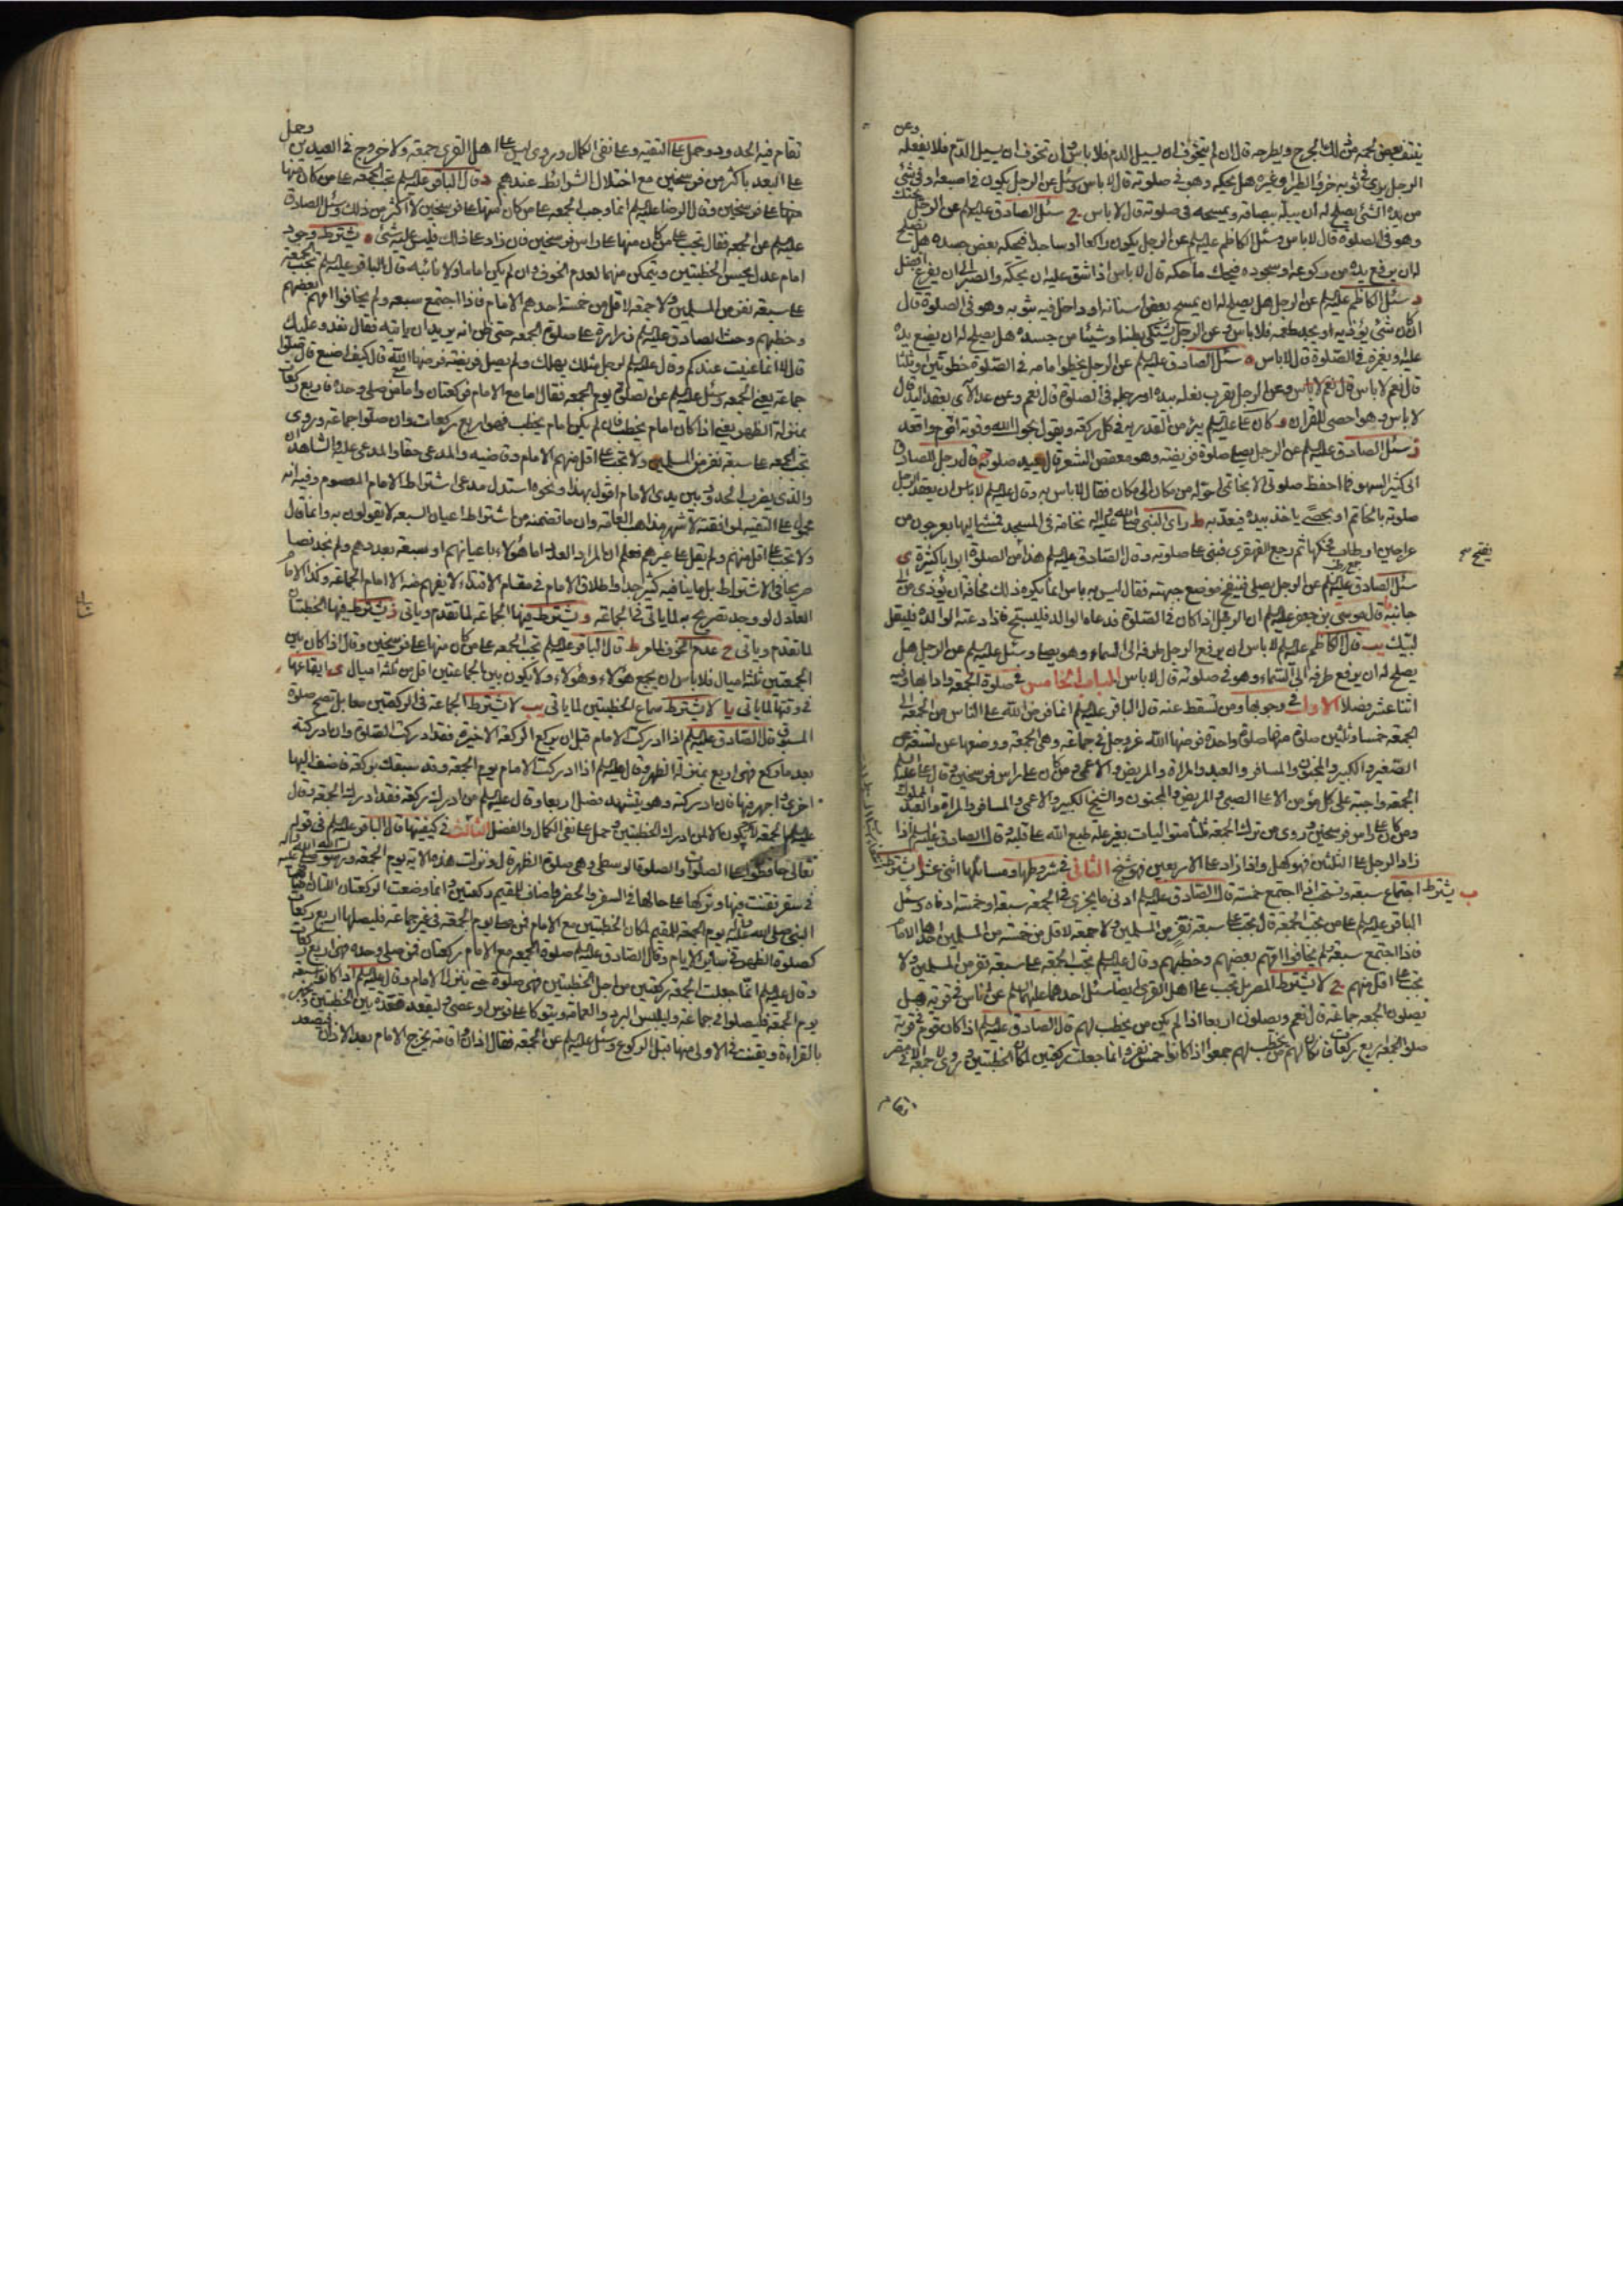 ينتف بعض لحمه من ذلك الجرح ويطرحه قال ان لم يتخوف ان يسيل الدم فلا باس وان تخوف ان يسيل الدم فلا يفعله وعن
الرجل يرى في ثوبه خرؤ الطير او غيره هل يحكه وهو في صلوته قال لا باس وسئل عن الرجل يكون في اصبعه او في شئ
من يده الشئ يصلح له ان يبله ببصاقه ويمسحه في صلوته قال لا باس ج سئل الصادق عليه السلم عن الرجل
وهو في الصلوة قال لا باس وسئل الكاظم عليه السلم عن الرجل يكون راكعا او ساجدا فيحكه بعض جسده هل يصلح
له ان يرفع يده من ركوعه او سجوده فيحك ما حكه قال لا باس اذا شق عليه ان يحكه والصبر الى ان يفرغ افضل
د سئل الكاظم عليه السلم عن الرجل هل يصلح له ان يمسح بعض اسنانه او داخل فيه بثوبه وهو في الصلوة قال
ان كان شئ يؤذيه او يجد طعمه فلا باس وعن الرجل يشتكى بطنه او شيئا من جسده هل يصلح له ان يضع يده
عليه او يغمزه في الصلوة قال لا باس ه سئل الصادق عليه السلم عن الرجل يخطوا امامه في الصلوة خطوتين او ثلثا
قال نعم لا باس وعن الرجل يقرب نعله بيده او رجله في الصلوة قال نعم وعن عد الآى بعقد اليد قال
لا باس وهو احصى للقران و كان على عليه السلم يبرؤ من القدرية في كل ركعة ويقول بحول الله وقوته اقوم واقعد
ز سئل الصادق عليه السلم عن الرجل يصلى صلوة فريضة وهو معقص الشعر قال يعيد صلوته ح قال رجل للصادق
انى كثير السهو فما احفظ صلوتى الا بخاتمى احوله من مكان الى مكان فقال لا باس به وقال عليه السلم لا باس ان يعد الرجل
صلوته بالخاتم او بحصى ياخذ بيده فيعد به ط راى النبى صلى الله عليه واله نخامة في المسجد فمشى اليها بعرجون من
عراجين ابن طاب فحكها ثم رجع القهقرى فبنى على صلوته وقال الصادق عليه السلم هذا من الصلوة ابوابا كثيرة ى
سئل الصادق عليه السلم عن الرجل يصلى فينفخ موضع جبهته فقال ليس به باس انما يكره ذلك مخافة ان يؤذى من الى
جانبه يا قال موسى بن جعفر عليه السلم ان الرجل اذا كان في الصلوة فدعاه الوالد فليسبح فاذا دعته الوالدة فليقل
لبيك يب قال الكاظم عليه السلم لا باس ان يرفع الرجل طرفه الى السماء وهو يصلى وسئل عليه السلم عن الرجل هل
يصلح له ان يرفع طرفه الى السماء وهو في صلوته قال لا باس الباب الخامس في صلوة الجمعة وادابها وفيه
اثنا عشر فصلا الاول في وجوبها ومن تسقط عنه قال الباقر عليه السلم انما فرض الله على الناس من الجمعة الى
الجمعة خمسا وثلثين صلوة منها صلوة واحدة فرضها الله عز وجل في جماعة وهى الجمعة ووضعها عن تسعة عن
الصغير والكبير والمجنون والمسافر والعبد والمراة والمريض والاعمى ومن كان على راس فرسخين وقال على عليه السلم
الجمعة واجبة على كل مؤمن الا على الصبى والمريض والمجنون والشيخ الكبير والاعمى والمسافر والمراة والعبد المملوك
ومن كان على راس فرسخين وروى من ترك الجمعة ثلثا متواليات بغير علة طبع الله على قلبه قال الصادق عليه السلم اذا
زاد الرجل على الثلثين فهو كهل واذا زاد على الاربعين فهو شيخ الثانى في شروطها ومسائلها اثنى عشر
ب يشترط اجتماع سبعة وتستحب اذا اجتمع خمسة قال الصادق عليه السلم ادنى ما يجزى في الجمعة سبعة او خمسة ادناه وسئل
الباقر عليه السلم على من تجب الجمعة قال تجب على سبعة نفر من المسلمين ولا جمعة لاقل من خمسة من المسلمين احدهم الامام
فاذا اجتمع سبعة ولم يخافوا امهم بعضهم وخطبهم وقال عليه السلم تجب الجمعة على سبعة نفر من المسلمين ولا
تجب على اقل منهم ج لا يشترط المصر بل تجب على اهل القرى ايضا سئل احدهما عليهما السلم عن اناس في قرية هل
يصلون الجمعة جماعة قال نعم ويصلون اربعا اذا لم يكن من يخطب لهم قال الصادق عليه السلم اذا كان قوم في قرية
صلوا الجمعة اربع ركعات فان كان لهم من يخطب لهم جمعوا اذا كانوا خمس نفر وانما جعلت ركعتين لمكان الخطبتين وروى لا جمعة الا في مصر
تقام
تقام فيه الحدود وحمل على التقية وعلى نفى الكمال وروى ليس على اهل القرى جمعة ولا خروج في العيدين وحمل
على البعد باكثر من فرسخين مع اختلال الشرائط عندهم د قال الباقر عليه السلم تجب الجمعة على من كان منها
على فرسخين وقال الرضا عليه السلم انما وجبت الجمعة على من كان منها على فرسخين لا اكثر من ذلك وسئل الصادق
عليه السلم عن الجمعة فقال تجب على من كان منها على راس فرسخين فان زاد على ذلك فليس عليه شئ ه يشترط وجود
امام عدل يحسن الخطبتين ويتمكن منهما لعدم الخوف وان لم يكن اماما ولا نائبه قال الباقر عليه السلم تجب الجمعة
على سبعة نفر من المسلمين ولا جمعة لاقل من خمسة احدهم الامام فاذا اجتمع سبعة ولم يخافوا امهم بعضهم
وخطبهم وحث الصادق عليه السلم زرارة على صلوة الجمعة حتى ظن انه يريد ان ياتيه فقال نغدو عليك
قال لا انما عنيت عندكم وقال عليه السلم لرجل مثلك يهلك ولم يصل فريضة فرضها الله قال كيف اصنع قال صلوا
جماعة يعنى الجمعة وسئل عليه السلم عن الصلوة يوم الجمعة فقال اما مع الامام فركعتان واما من صلى وحده فاربع ركعات
بمنزلة الظهر يعنى اذا كان امام يخطب فان لم يكن امام يخطب فهو اربع ركعات وان صلوا جماعة وروى
تجب الجمعة على سبعة نفر من المسلمين ولا تجب على اقل منهم الامام وقاضيه والمدعى حقا والمدعى عليه والشاهدان
والذى يضرب الحدود بين يدى الامام اقول بهذا ونحوه استدل مدعى اشتراط الامام المعصوم وفيه انه
محمول على التقية لموافقته لاشهر مذاهب العامة وان ما تضمنه من اشتراط اعيان السبعة لا يقولون به وانما قال
ولا تجب على اقل منهم ولم يقل على غيرهم فعلم ان المراد العدد اما هؤلاء باعيانهم او سبعة بعددهم ولم نجد نصا
صريحا في الاشتراط بل ما ينافيه كثير جدا واطلاق الامام في مقام الاقتداء لا يفهم منه الا امام الجماعة وكذا الامام
العادل لو وجد تصريح به لما ياتى في الجماعة و يشترط فيها الجماعة لما تقدم وياتى ز يشترط فيها الخطبتان
لما تقدم وياتى ح عدم الخوف لما مر ط قال الباقر عليه السلم تجب الجمعة على من كان منها على فرسخين وقال اذا كان بين
الجمعتين ثلثة اميال فلا باس ان يجمع هؤلاء وهؤلاء ولا يكون بين الجماعتين اقل من ثلثة اميال ى ايقاعها
في وقتها لما ياتى يا لا يشترط سماع الخطبتين لما ياتى يب لا يشترط الجماعة في الركعتين معا بل تصح صلوة
المسبوق قال الصادق عليه السلم اذا ادركت الامام قبل ان يركع الركعة الاخيرة فقد ادركت الصلوة وان ادركته
بعد ما ركع فهى اربع بمنزلة الظهر وقال عليه السلم اذا ادركت الامام يوم الجمعة وقد سبقك بركعة فاضف اليها
اخرى واجهر فيها فان ادركته وهو يتشهد فصل اربعا وقال عليه السلم من ادرك ركعة فقد ادرك الجمعة وقال
عليه السلم الجمعة لا تكون الا لمن ادرك الخطبتين وحمل على نفى الكمال والفضل الثالث في كيفيتها قال الباقر عليه السلم في قوله
تعالى حافظوا على الصلوات والصلوة الوسطى وهى صلوة الظهر قال ونزلت هذه الاية يوم الجمعة ورسول الله صلى الله عليه واله
في سفر فقنت فيها وتركها على حالها في السفر والحضر واضاف للمقيم ركعتين وانما وضعت الركعتان اللتان اضافهما
النبى صلى الله عليه واله يوم الجمعة للمقيم لمكان الخطبتين مع الامام فمن صلى يوم الجمعة في غير جماعة فليصلها اربع ركعات
كصلوة الظهر في سائر الايام وقال الصادق عليه السلم صلوة الجمعة مع الامام ركعتان فمن صلى وحده فهى اربع ركعات
وقال عليه السلم انما جعلت الجمعة ركعتين من اجل الخطبتين فهى صلوة حتى ينزل الامام وقال عليه السلم اذا كانوا سبعة
يوم الجمعة فليصلوا في جماعة وليلبس البرد والعمامة ويتوكا على قوس او عصى وليقعد قعدة بين الخطبتين ويجهر
بالقراءة ويقنت في الاولى منها قبل الركوع وسئل عليه السلم عن الجمعة فقال اذان واقامة يخرج الامام بعد الاذان فيصعد